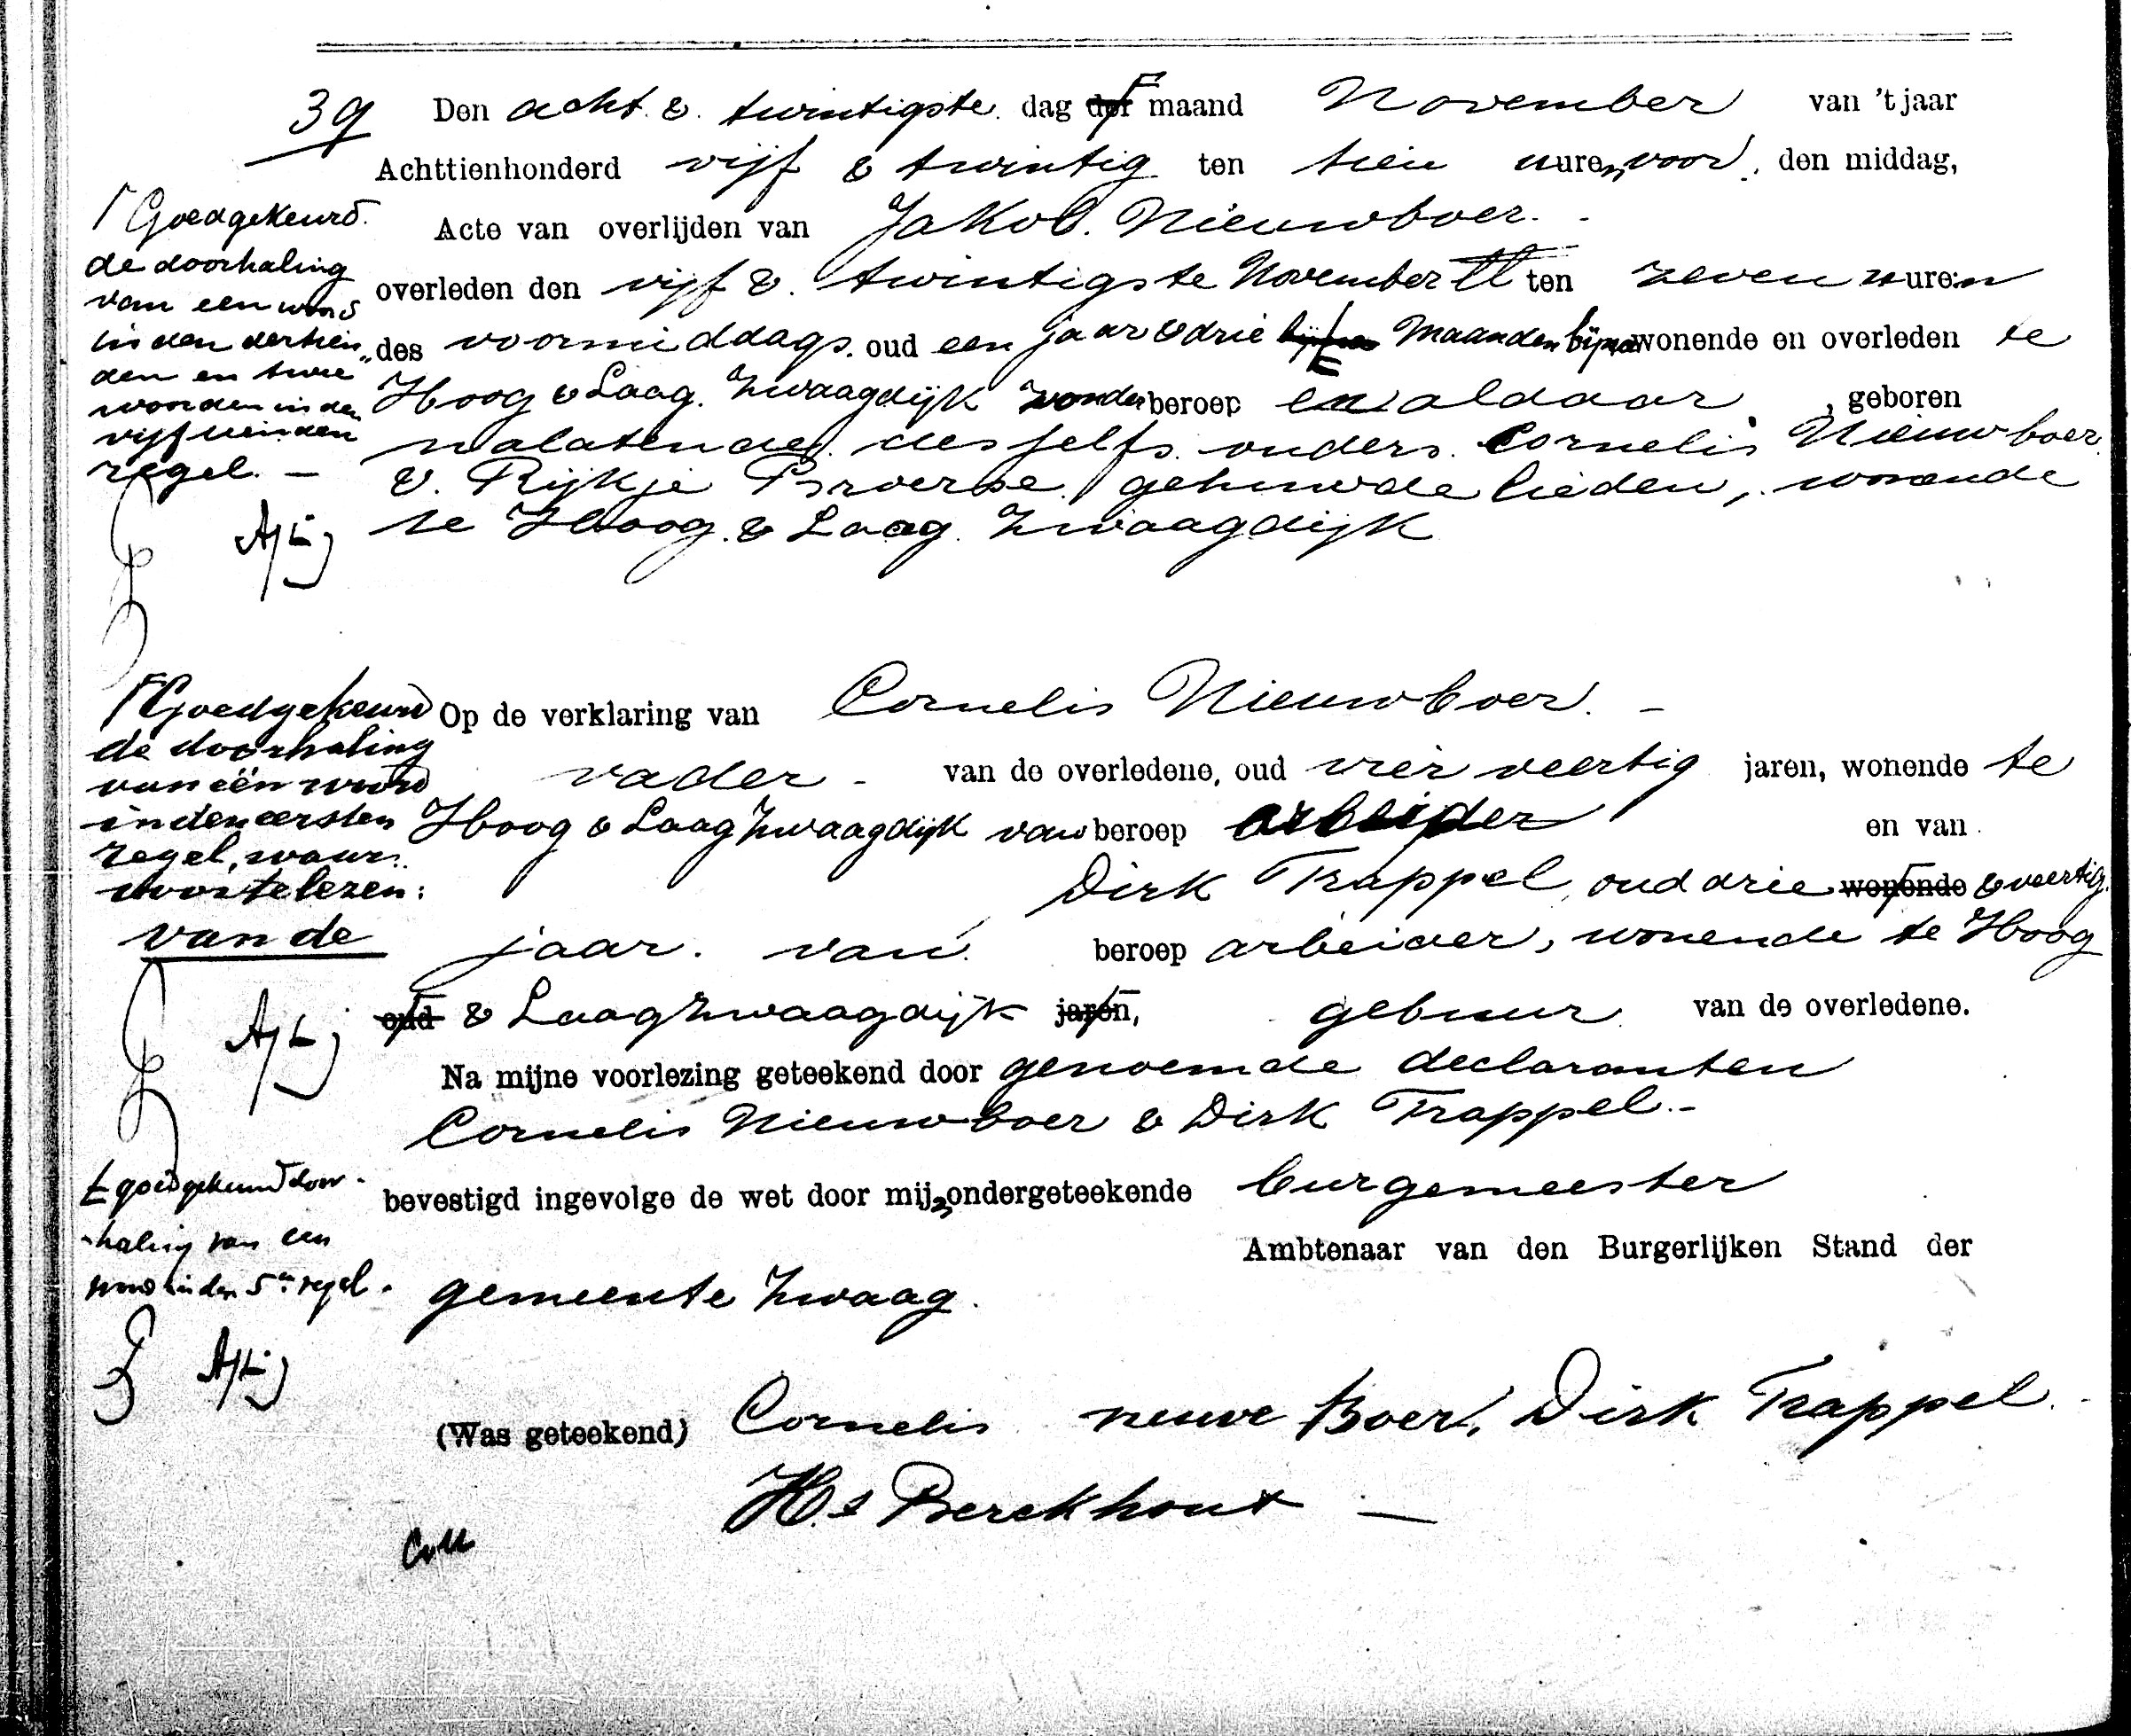 39 Den acht & twintigste dag der maand November van 't jaar
Achttienhonderd vijf & twintig ten tien uuren voor den middag,
Acte van overlijden van Jakob Nieuwboer.
overleden den vijf & twintigste November ll ten zeven uuren
des voormiddags oud een jaar & drie bijna Maanden bijna wonende en overleden te
Hoog & Laag Zwaagdijk zonder beroep en aldaar, geboren
nalatende desselfs ouders Cornelis Nieuwboer
& Rijkje Broerse gehuwde lieden, wonende
te Hoog & Laag Zwaagdijk
Γ Goedgekeurd
de doorhaling
van een woord
in den dertien
den en twee
woorden in den
vijftienden
regel. —
Op de verklaring van Cornelis Nieuwboer. —
vader - van de overledene, oud vier veertig jaren, wonende te
Hoog & Laag Zwaagdijk van beroep arbeider en van
Dirk Trappel, oud drie wonende & veertig
jaar. van beroep arbeider, wonende te Hoog
oud & Laag Zwaagdijk jaren, gebuur van de overledene.
Na mijne voorlezing geteekend door genoemde declaranten
Cornelis Nieuwboer & Dirk Trappel.-
bevestigd ingevolge de wet door mij, ondergeteekende burgemeester
Ambtenaar van den Burgerlijken Stand der
gemeente Zwaag.
Goedgekeurd
de doorhaling
van één woord
in den eersten
regel, waar
voor te lezen:
van de
goedgekeurd door-
haling van een
woord in den 5en regel.
(Was geteekend) Cornelis neuwe Boer, Dirk Trappel.
Hs Berckhout —
Coll